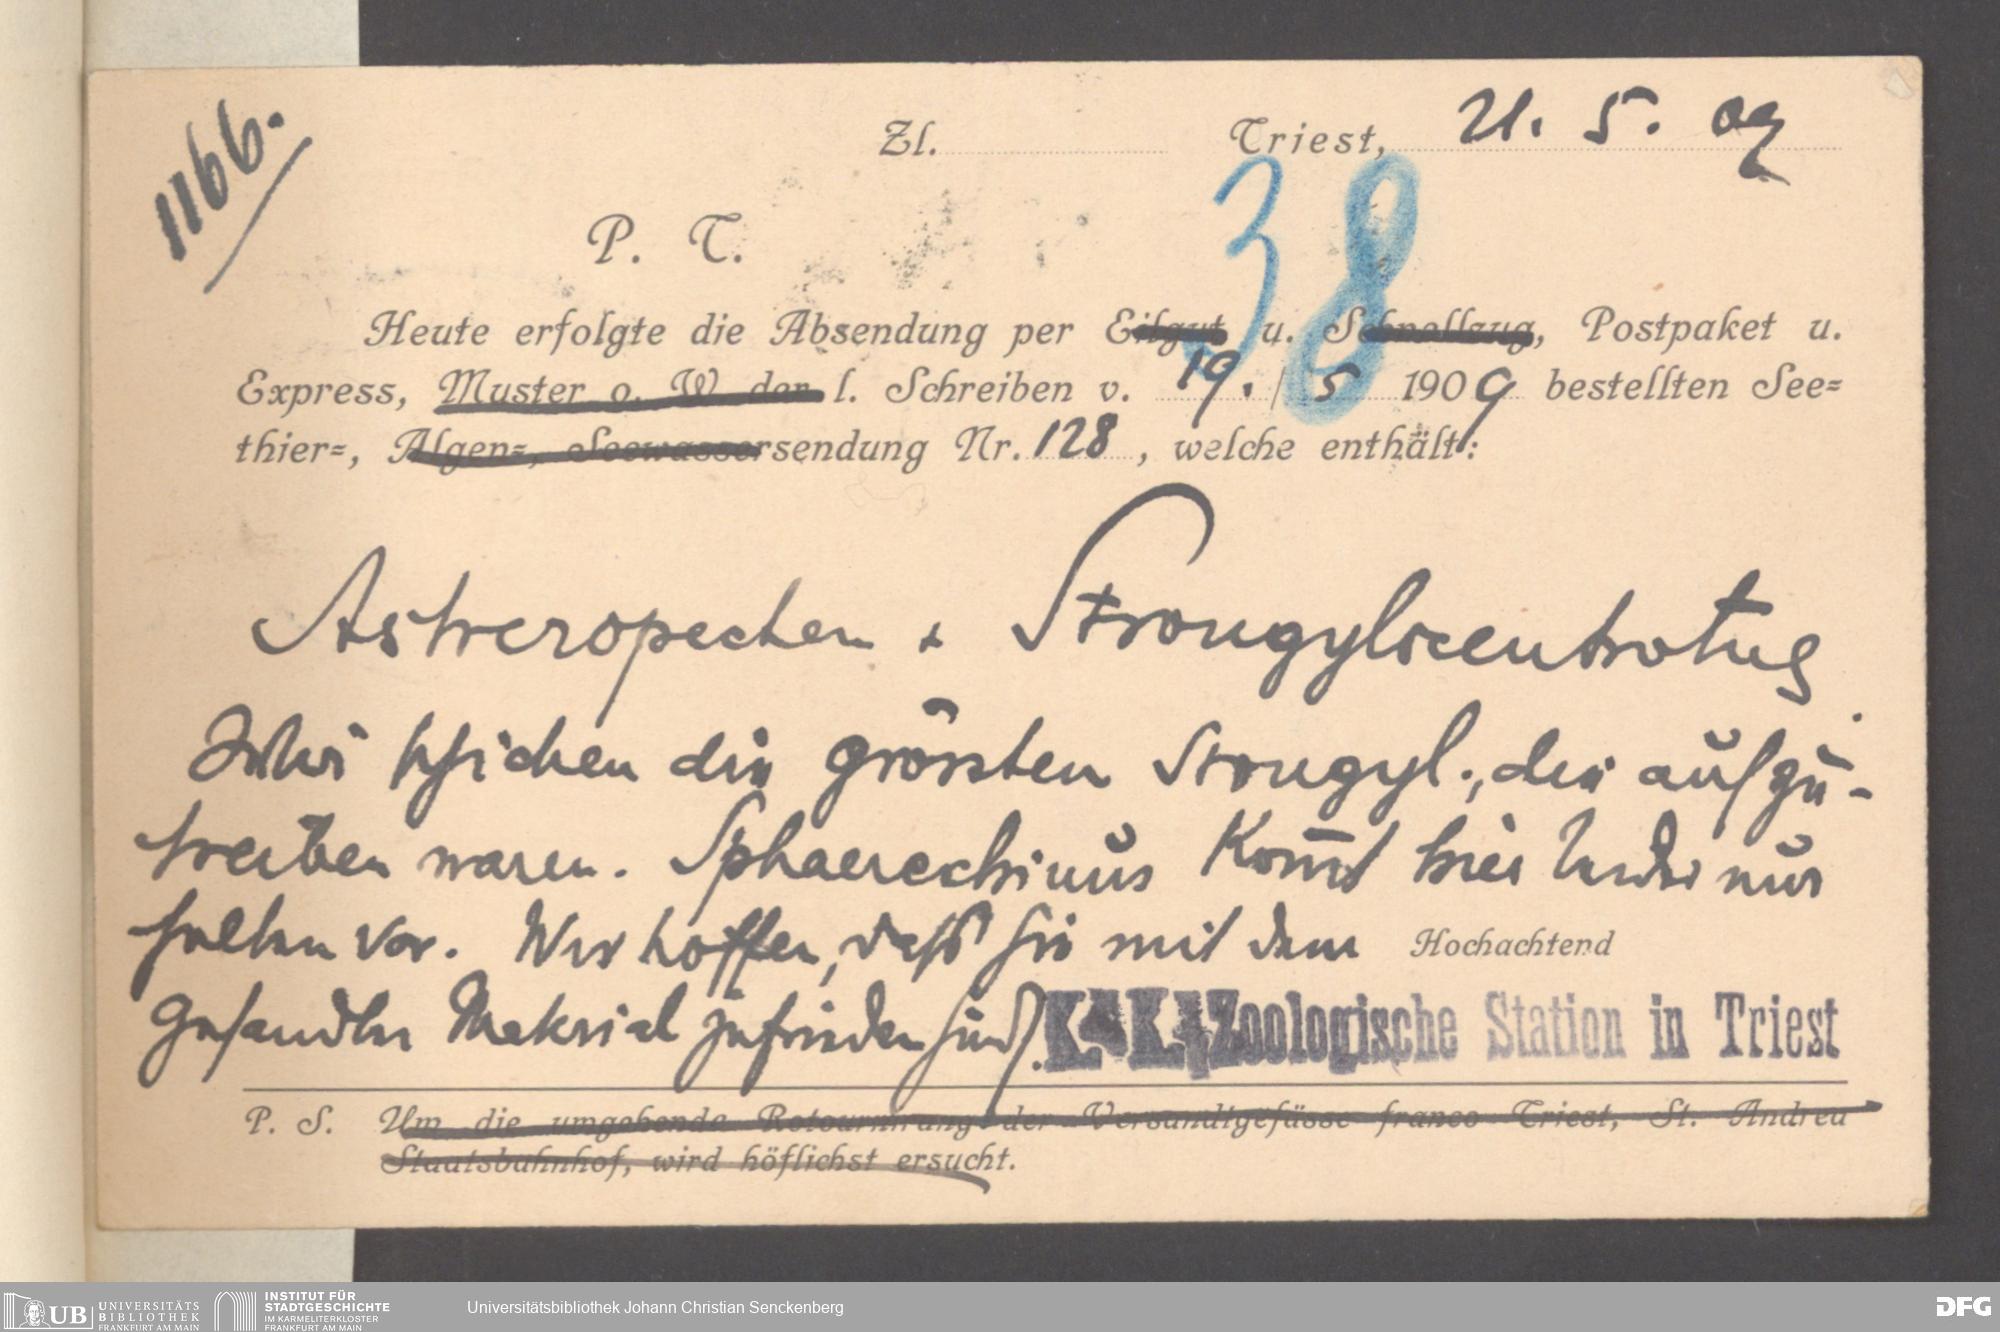 1166.
Zl. Triest, 21. 5. 09
38
P. T.
Heute erfolgte die Absendung per Eilgut u. Schnellzug, Postpaket u.
Express, Muster o. W der l. Schreiben v. 19. / 5 1909 bestellten See=
thier=, Algen=, Seewassersendung Nr. 128, welche enthält:
Astreropecten + Strongylocentrotus
Wir schicken die grössten Strongyl., die aufzu-
treiben waren. Sphaerechinus kom̅t hier leider nur
selten vor. Wir hoffen, daß Sie mit dem Hochachtend
gesandten Material zufrieden sind.
K. K. Zoologische Station in Triest
P. S. Um die umgehende Retournirung der Versandtgefässe franco Triest, St. Andrea
Staatsbahnhof, wird höflichst ersucht.
UB UNIVERSITÄTS
BIBLIOTHEK
FRANKFURT AM MAIN
INSTITUT FÜR
STADTGESCHICHTE
IM KARMELITERKLOSTER
FRANKFURT AM MAIN
Universitätsbibliothek Johann Christian Senckenberg
DFG